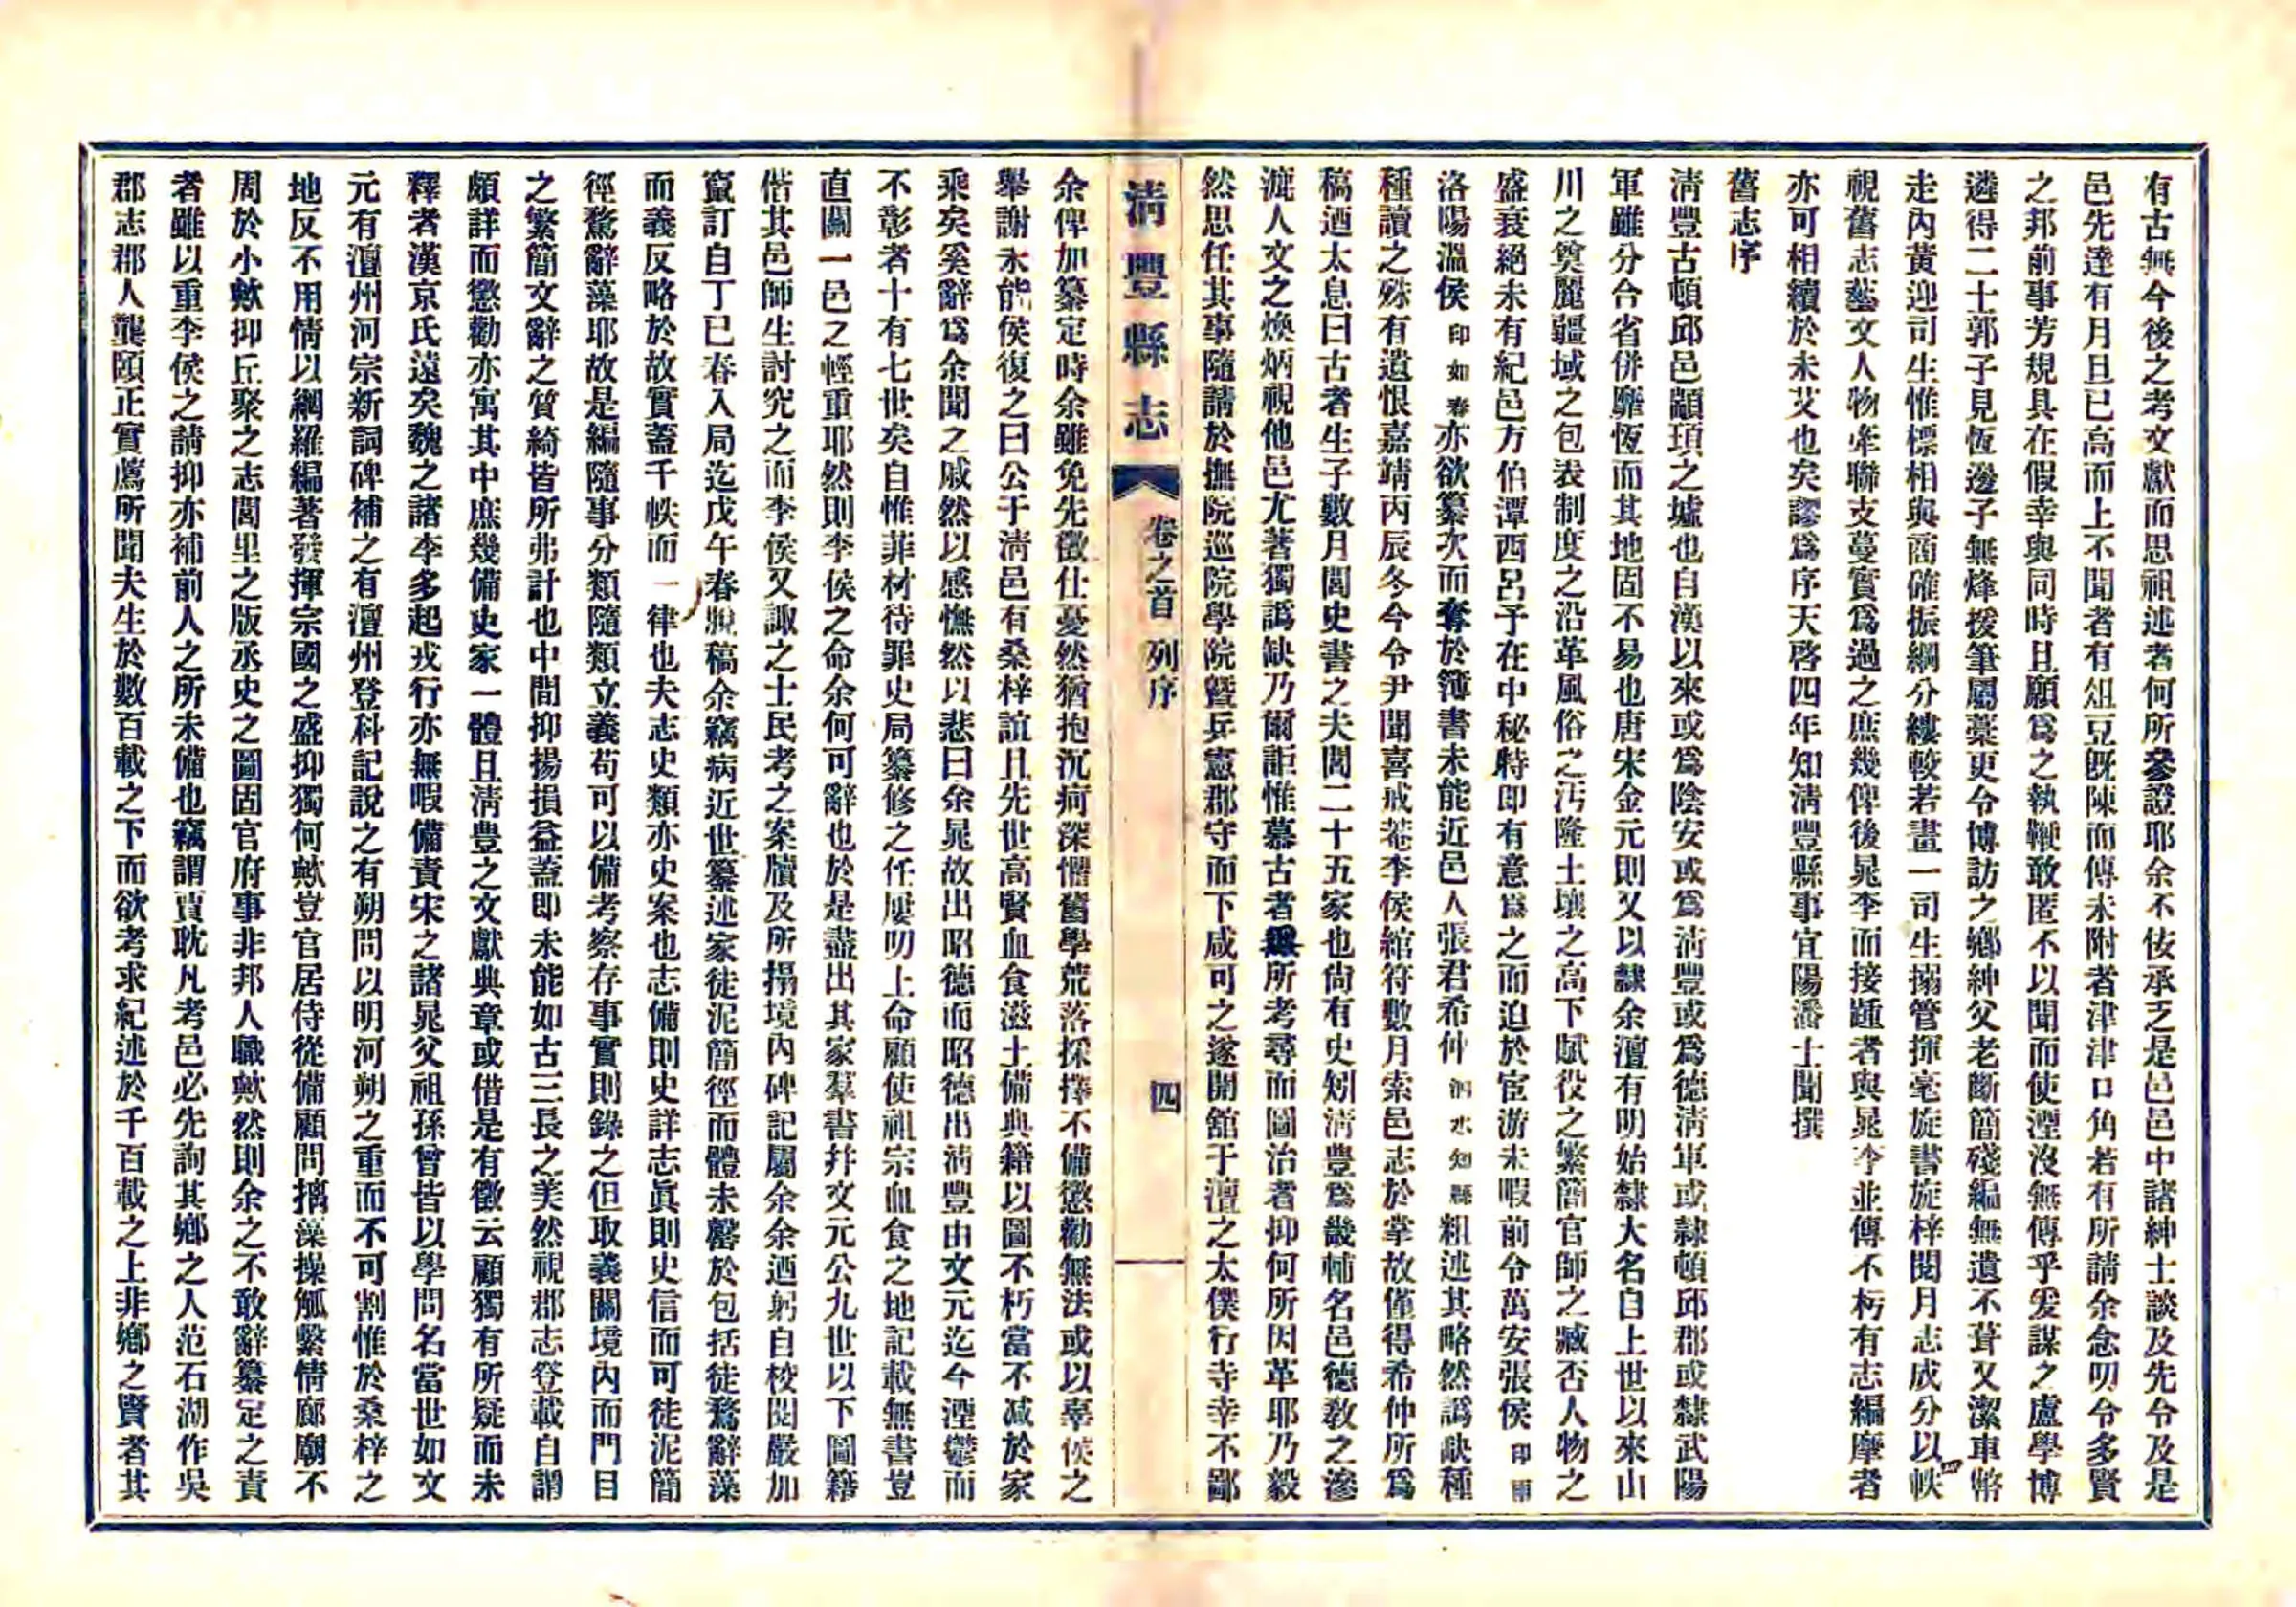 有古無今後之考文獻而思祖述者何所參證耶余不佞承乏是邑邑中諸紳士談及先令及是
邑先達有月旦已高而上不聞者有俎豆旣陳而傳未附者津津口角若有所請余念叨令多賢
之邦前事芳規具在假幸與同時且願爲之執鞭敢匿不以聞而使湮沒無傳乎爰謀之盧學博
遴得二士郭子見恆邊子無烽援筆屬藁更令博訪之鄉紳父老斷簡殘編無遺不葺又潔車幣
走內黃迎司生惟標相與商確振綱分縷較若畫一司生搦管揮毫旋書旋梓閱月志成分以四帙
視舊志藝文人物牽聯支蔓實爲過之庶幾俾後晁李而接踵者與晁李並傳不朽有志編摩者
亦可相續於未艾也矣謬爲序天啓四年知清豐縣事宜陽潘士聞撰
舊志序
清豐古頓邱邑顓頊之墟也自漢以來或爲陰安或爲清豐或爲德清軍或隸頓邱郡或隸武陽
軍雖分合省併靡恆而其地固不易也唐宋金元則又以隸余澶有明始隸大名自上世以來山
川之奠麗疆域之包表制度之沿革風俗之汚隆土壤之高下賦役之繁簡官師之臧否人物之
盛衰絕未有紀邑方伯潭西呂予在中秘時即有意爲之而迫於宦游未暇前令萬安張侯印
洛陽溫侯印如春亦欲纂次而奪於簿書未能近邑人張君希仲泗水知縣粗述其略然譌缺種
種讀之殊有遺恨嘉靖丙辰冬今令尹聞喜戒菴李侯綰符數月索邑志於掌故僅得希仲所爲
稿迺太息曰古者生子數月閭史書之夫閭二十五家也尚有史矧清豐爲畿輔名邑德敎之滲
漉人文之煥炳視他邑尤著獨譌缺乃爾詎惟慕古者無所考尋而圖治者抑何所因革耶乃毅
然思任其事隨請於撫院巡院學院曁兵憲郡守而下咸可之遂開舘于澶之太僕行寺幸不鄙
清豐縣志
卷之首 列序
四
余俾加纂定時余雖免先徵仕憂然猶抱沉疴深懼舊學荒落採擇不備懲勸無法或以辜侯之
舉謝未能侯復之曰公于清邑有桑梓誼且先世高賢血食滋土備典籍以圖不朽當不减於家
乘矣奚辭爲余聞之戚然以感憮然以悲曰余晁故出昭德而昭德出清豐由文元迄今湮鬱而
不彰者十有七世矣自惟菲材待罪史局纂修之任屢叨上命顧使祖宗血食之地記載無書豈
直關一邑之輕重耶然則李侯之命余何可辭也於是盡出其家羣書幷文元公九世以下圖籍
偕其邑師生討究之而李侯又諏之士民考之案牘及所搨境內碑記屬余余迺躬自校閱嚴加
竄訂自丁巳春入局迄戊午春脫稿余竊病近世纂述家徒泥簡徑而體未罄於包括徒騖辭藻
而義反略於故實蓋千帙而一律也夫志史類亦史案也志備則史詳志眞則史信而可徒泥簡
徑騖辭藻耶故是編隨事分類隨類立義苟可以備考察存事實則錄之但取義關境內而門目
之繁簡文辭之質綺皆所弗計也中間抑揚損益蓋即未能如古三長之美然視郡志登載自謂
頗詳而懲勸亦寓其中庶幾備史家一體且清豐之文獻典章或借是有徵云顧獨有所疑而未
釋者漢京氏遠矣魏之諸李多起戎行亦無暇備責宋之諸晁父祖孫曾皆以學問名當世如文
元有澶州河宗新詞碑補之有澶州登科記說之有朔問以明河朔之重而不可割惟於桑梓之
地反不用情以網羅編著發揮宗國之盛抑獨何歟豈官居侍從備顧問摛藻操觚繫情廊廟不
周於小歟抑丘聚之志閭里之版丞史之圖固官府事非邦人職歟然則余之不敢辭纂定之責
者雖以重李侯之請抑亦補前人之所未備也竊謂賈耽凡考邑必先詢其鄉之人范石湖作吳
郡志郡人龔頤正實薦所聞夫生於數百載之下而欲考求紀述於千百載之上非鄉之賢者其